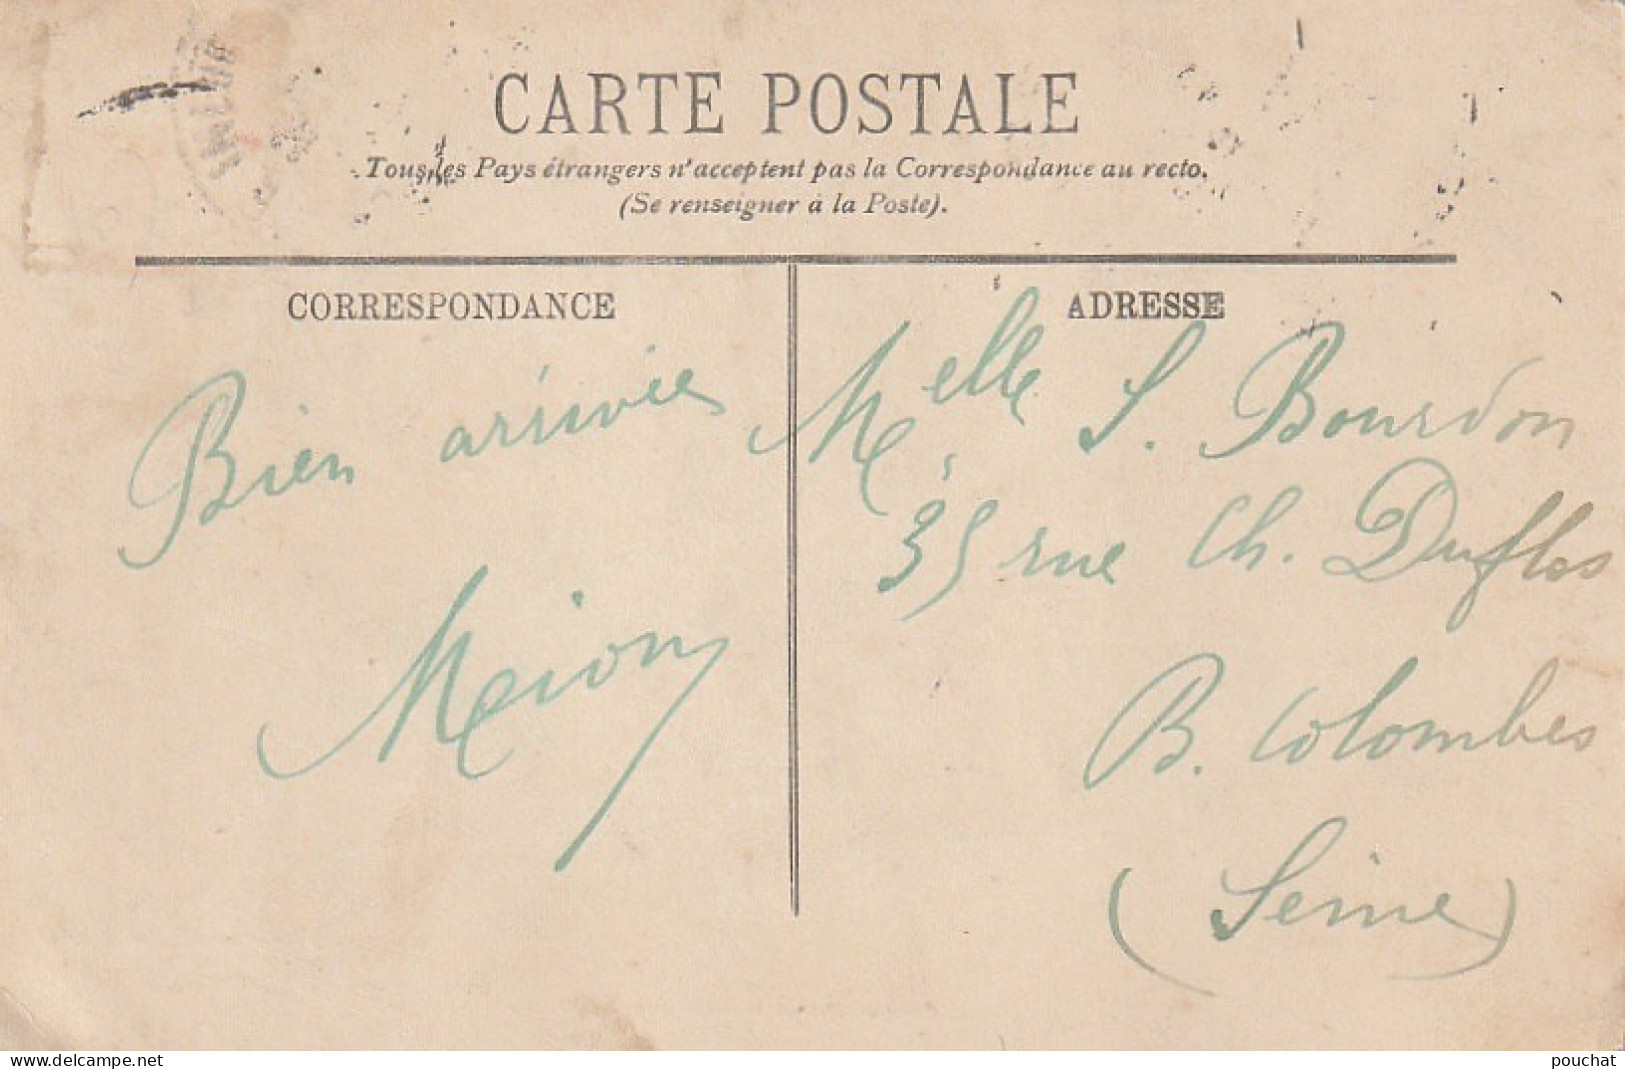 CARTE POSTALE
Tous les Pays étrangers n'acceptent pas la Correspondance au recto.
(Se renseigner à la Poste).
CORRESPONDANCE
Bien arrivée
ADRESSE
Melle S. Bourdon
35 rue Ch. Duflos
B. Colombes
(Seine)
www.delcampe.net
pouchat